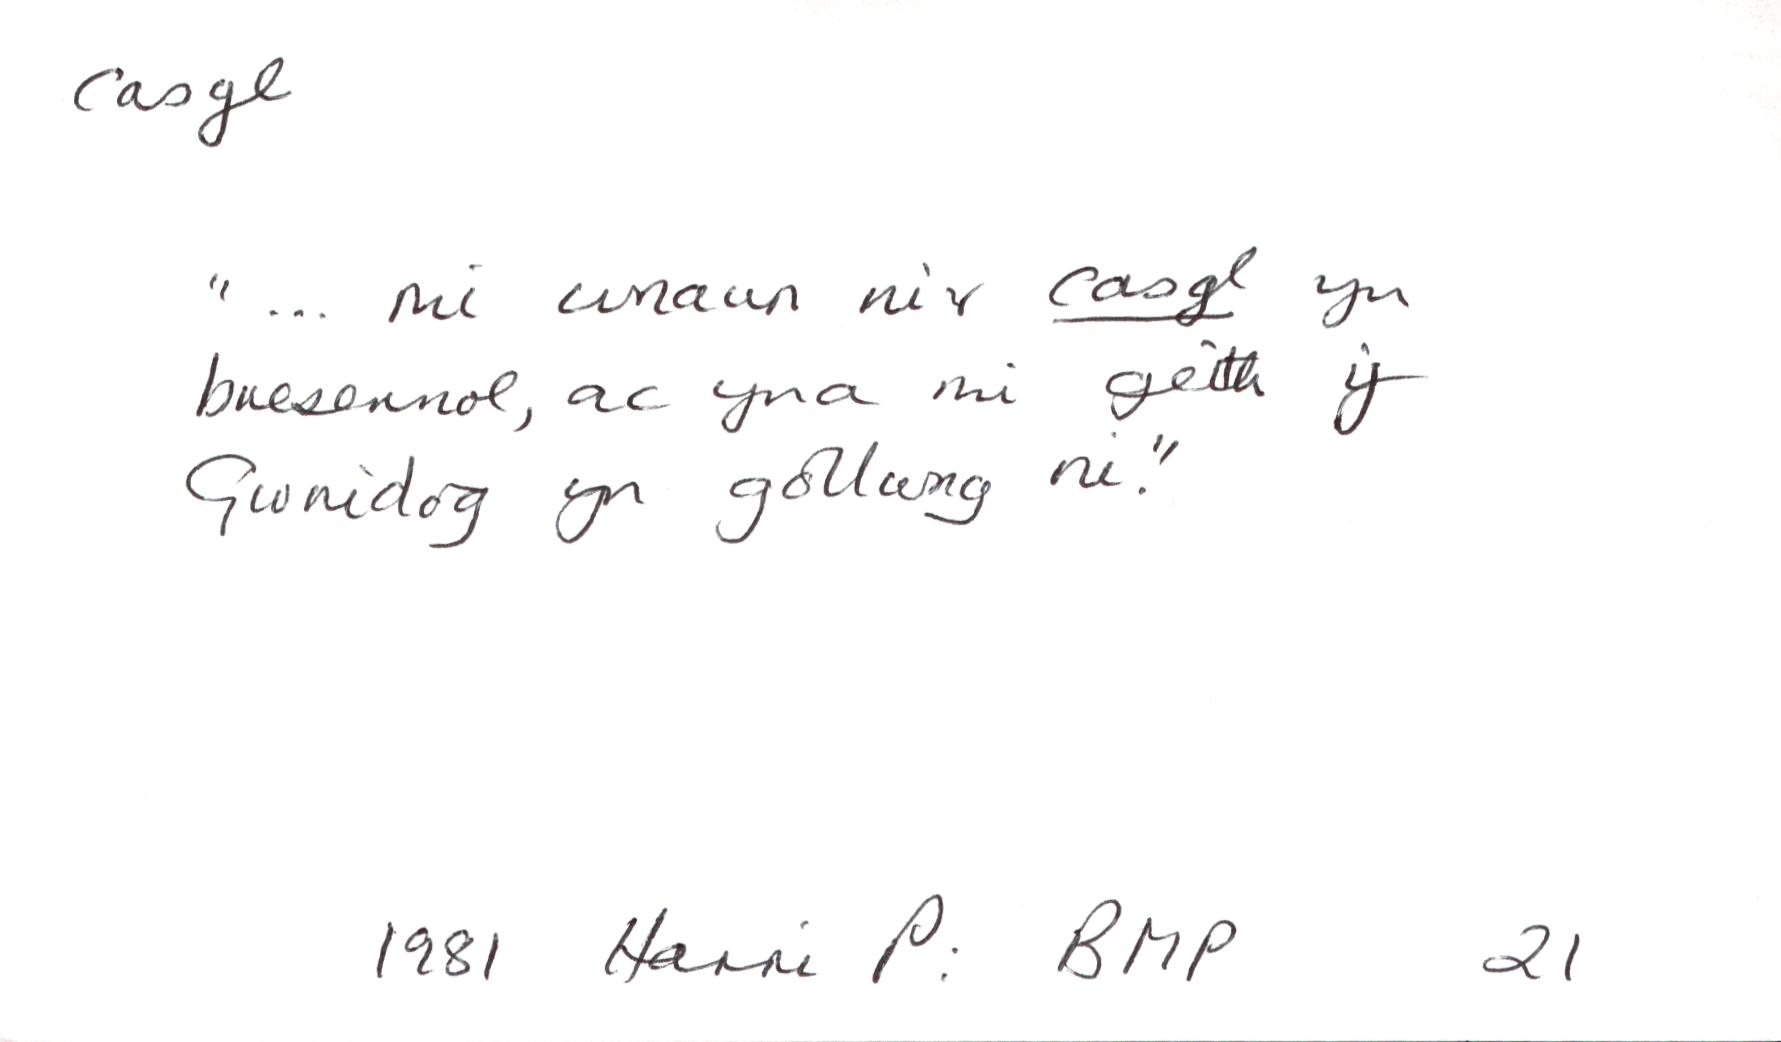 casgl
"... mi wnawn ni'r casgl yn
bresennol, ac yna mi geith y
Gwnidog yn gollwng ni."
1981 Harri P: BMP 21